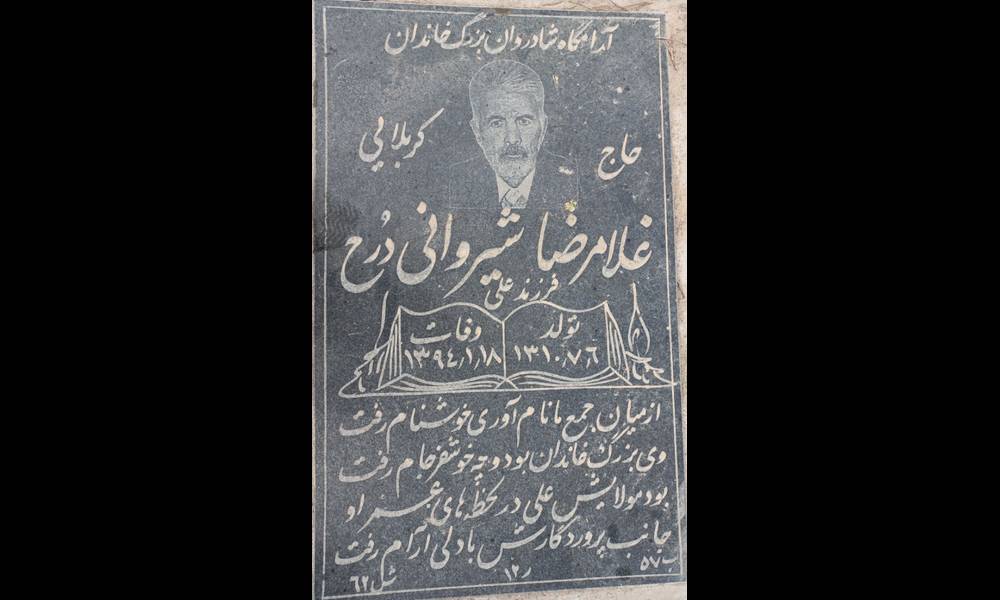 آرامگاه شادروان بزرگ خاندان
حاج کربلایی
غلامرضا شیروانی دُرح
فرزند علی
تولد وفات
۱۳۱۰٫۷٫۶ ۱۳۹۴٫۱٫۱۸
از میان جمع ما نام آوری خوشنام رفت
وی بزرگ خاندان بود و چه خوشفرجام رفت
بود مولایش علی در لحظه های عمر او
جانب پروردگارش با دلی آرام رفت
ب ۵۷ ر ۱۲ ش ۶۲